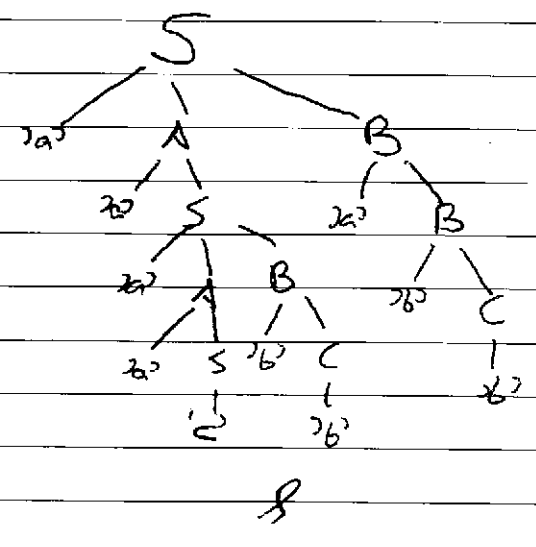 S
'a' A B
'a' S 'a' B
'a' A B 'b' C
'a' S 'b' C 'b'
'c' 'b'